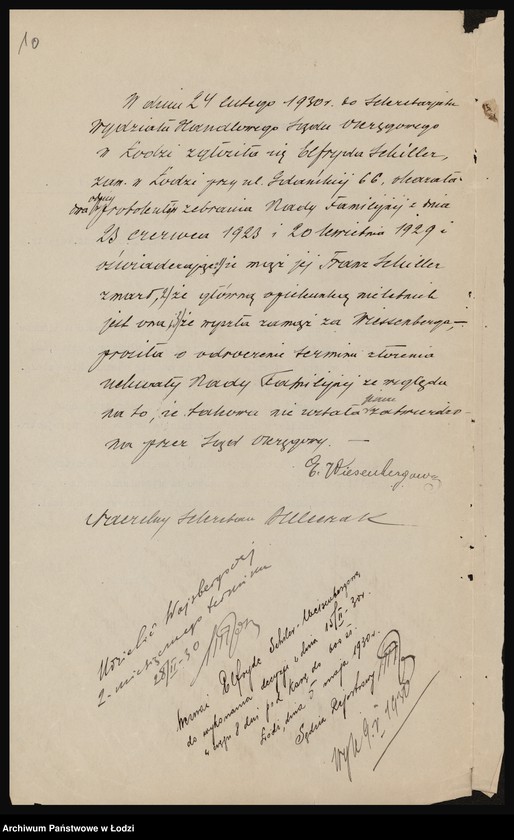 10
W dniu 24 lutego 1930 r. do Sekretarjatu
Wydziału Handlowego Sądu Okręgowego
w Łodzi zgłosiła się Elfryda Schiller,
zam. w Łodzi przy ul. Gdańskiej 66, okazała
dwa odpisy protokułów zebrania Rady Familijnej z dnia
23 czerwca 1923 i 20 kwietnia 1929 i
oświadczając 1/ że mąż jej Franz Schiller
zmarł, 2/ że główną opiekunką nieletnich
jest ona, 3/ że wyszła zamąż za Wiessenberga, –
prosiła o odroczenie terminu złożenia
uchwały Rady Familijnej ze względu
na to, że takowa nie została zatwierdzo-
na przez Sąd Okręgowy. —
E. Wiesenbergowa
Naczelny Sekretarz
Udzielić
2-miesięcznego terminu
28/II-30
Wezwać Elfrydę Schiler-
do wykonania decyzji z dnia 15/II-30r.
w ciągu 8 dni pod karą do zł.
Łódź, dnia 5 maja 1930r.
Sędzia Rejestrowy
Wysł. 9.V 1930
Archiwum Państwowe w Łodzi